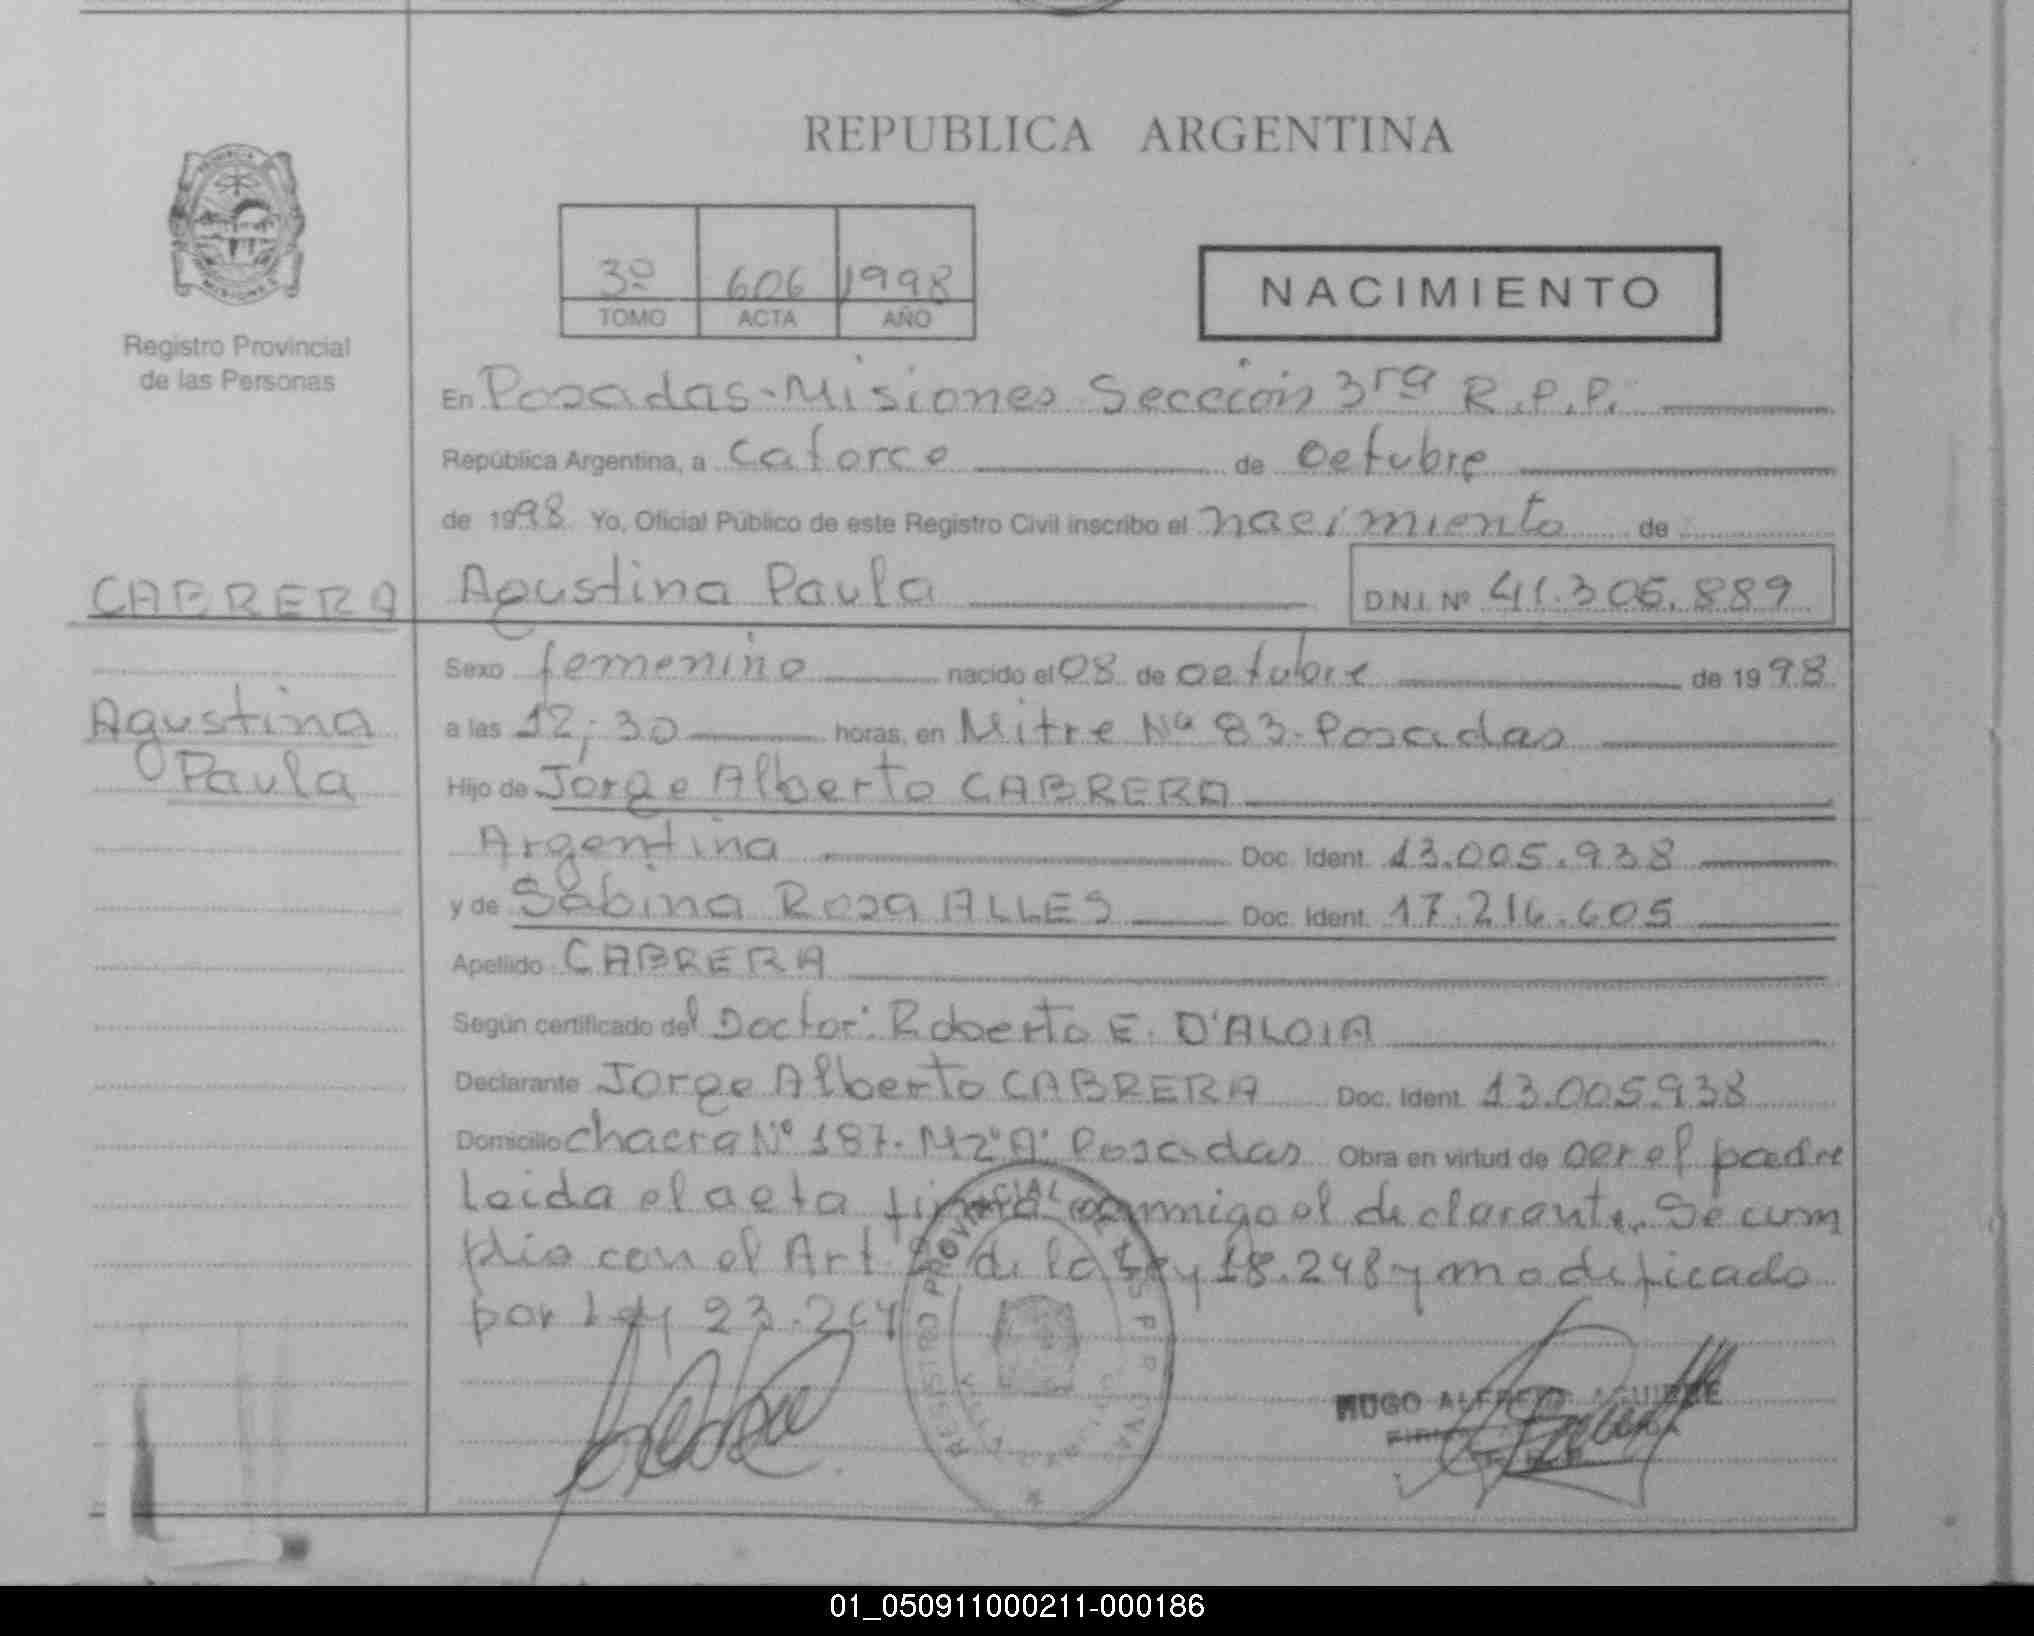 REPUBLICA ARGENTINA
3º 606 1998
TOMO ACTA AÑO
NACIMIENTO
Registro Provincial
de las Personas
En Posadas-Misiones Sección 3ra R.P.P.
República Argentina, a catorce de octubre
de 1998 Yo, Oficial Público de este Registro Civil inscribo el nacimiento de
CABRERA Agustina Paula D.N.I. Nº 41.306.889
Sexo femenino nacido el 08 de octubre de 1998
Agustina
Paula
a las 12;30 horas, en Mitre Nº 83-Posadas
Hijo de Jorge Alberto CABRERA
Argentina Doc. Ident. 13.005.938
y de Sabina Rosa ALLES Doc. Ident. 17.216.605
Apellido CABRERA
Según certificado del Doctor: Roberto E. D'ALOIA
Declarante Jorge Alberto CABRERA Doc. Ident. 13.005.938
Domicilio chacra Nº 187- Mz"A" Posadas Obra en virtud de ser el padre
leida el acta firma conmigo el declarante. Se cum
plio con el Art. de la Ley 18.248 y modificado
por Ley 23.264
REGISTRO PROVINCIAL DE LAS
HUGO ALFREDO AGUIRRE
01_050911000211-000186